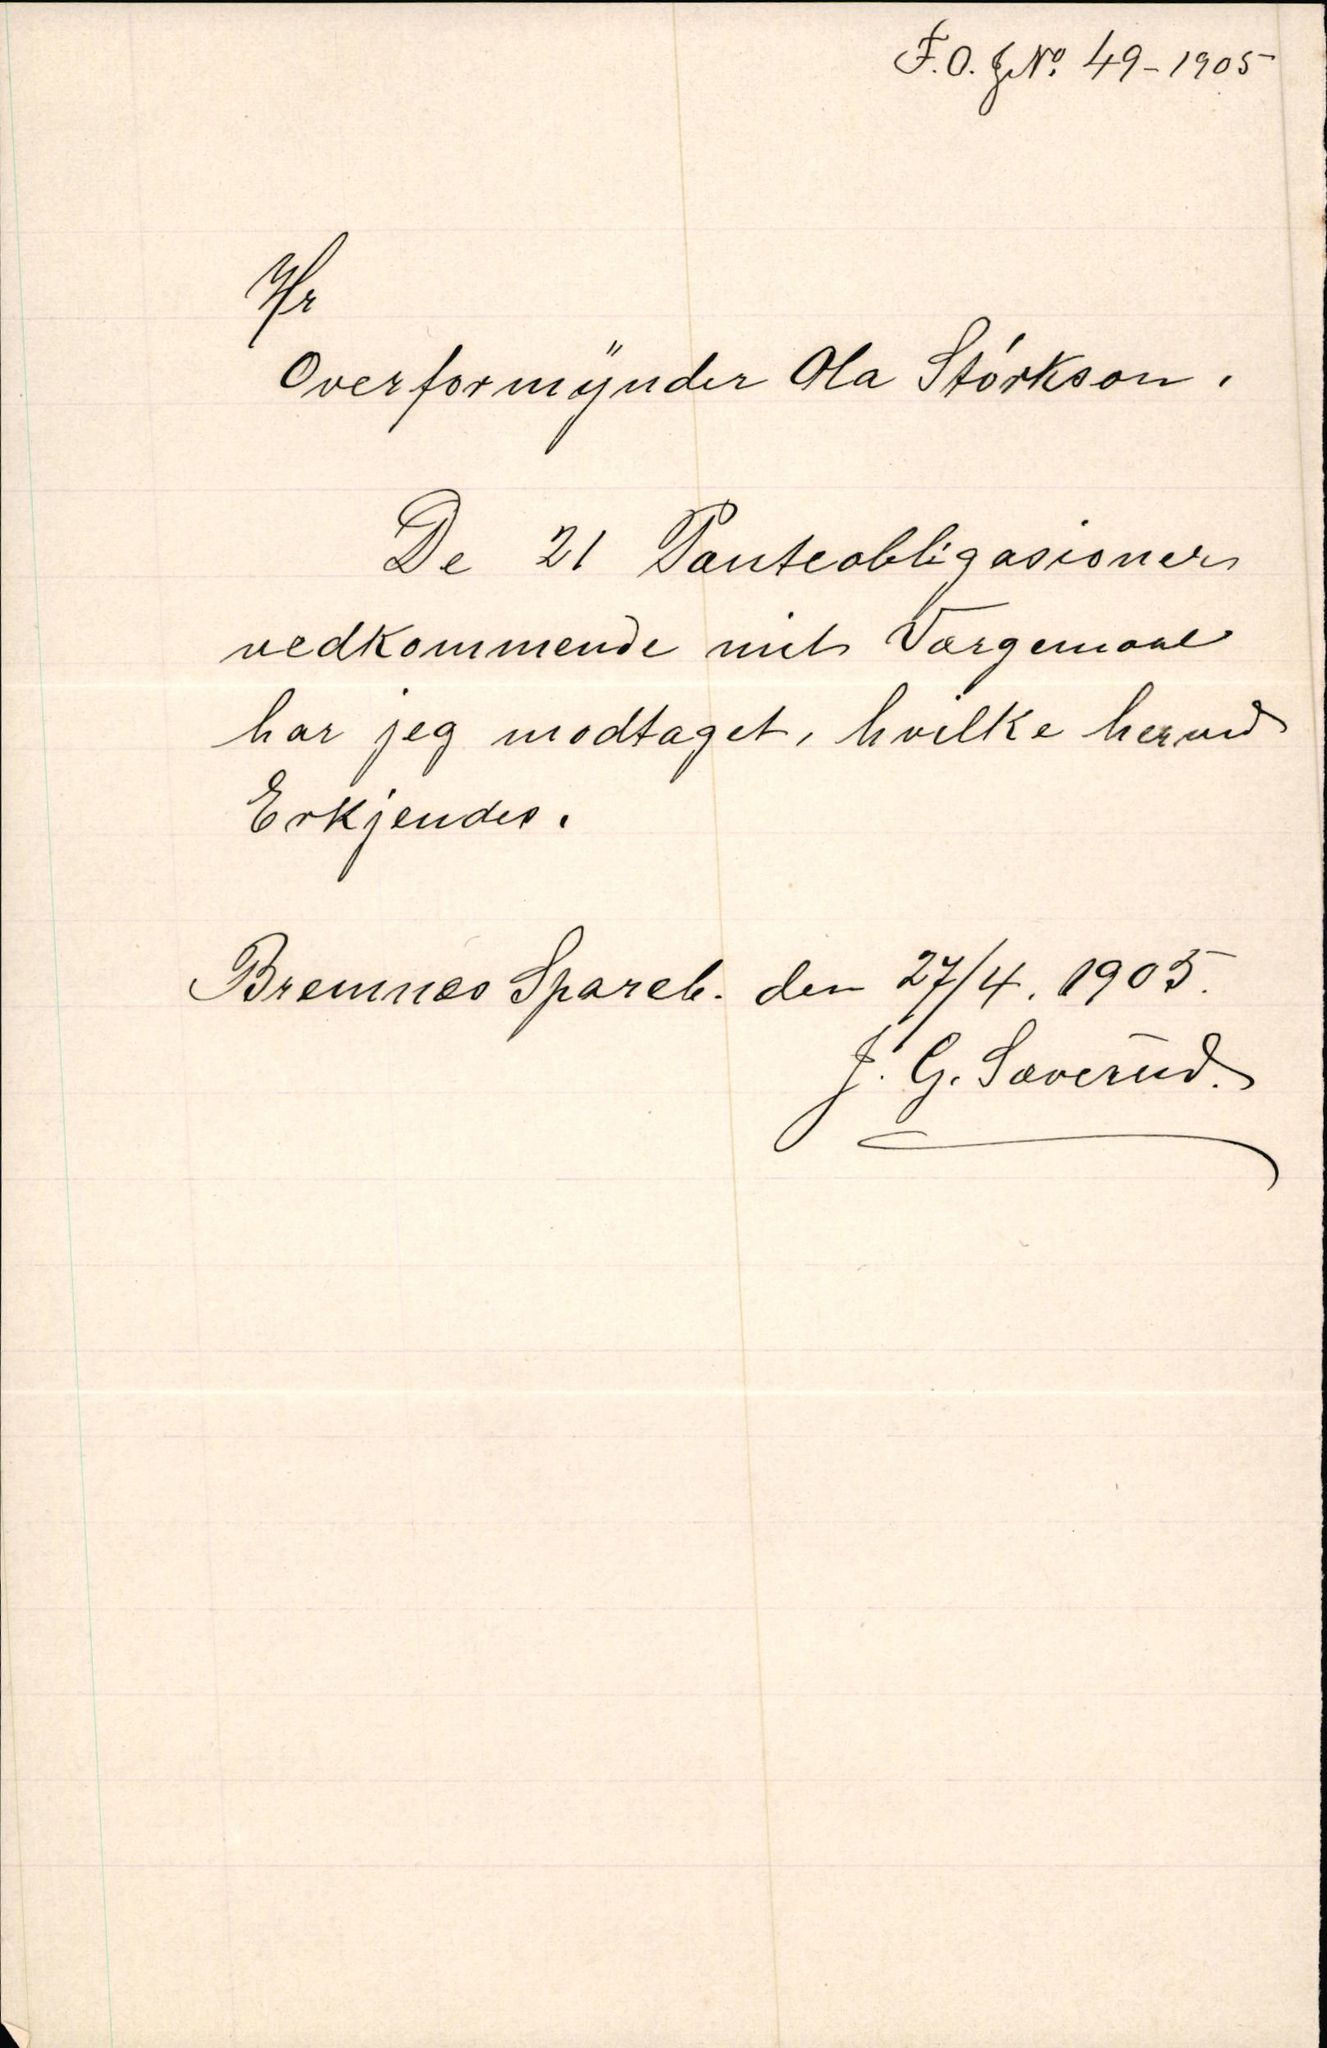 F.O. J.No. 49-1905
Hr
Overformÿnder Ola Størkson.
De 21 Panteobligasioner
vedkommende mit Værgemaal
har jeg modtaget, hvilke herved
Erkjendes.
Bremnes Spareb. den 27/4. 1905.
J. G. Sæverud.